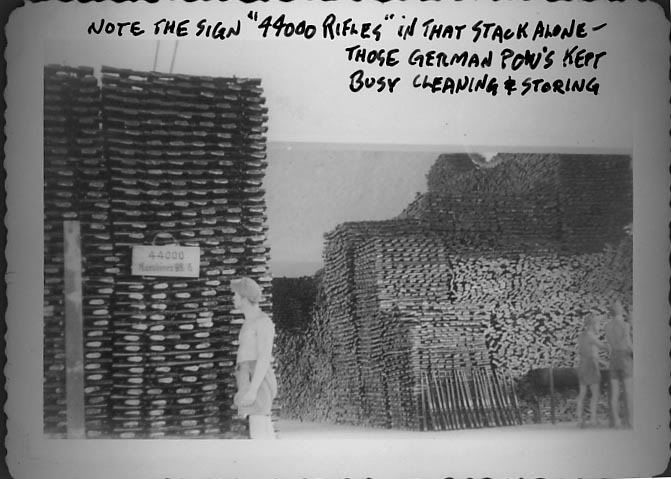 NOTE THE SIGN "44000 RIFLES" IN THAT STACK ALONE -
THOSE GERMAN POW'S KEPT
BUSY CLEANING & STORING
44000